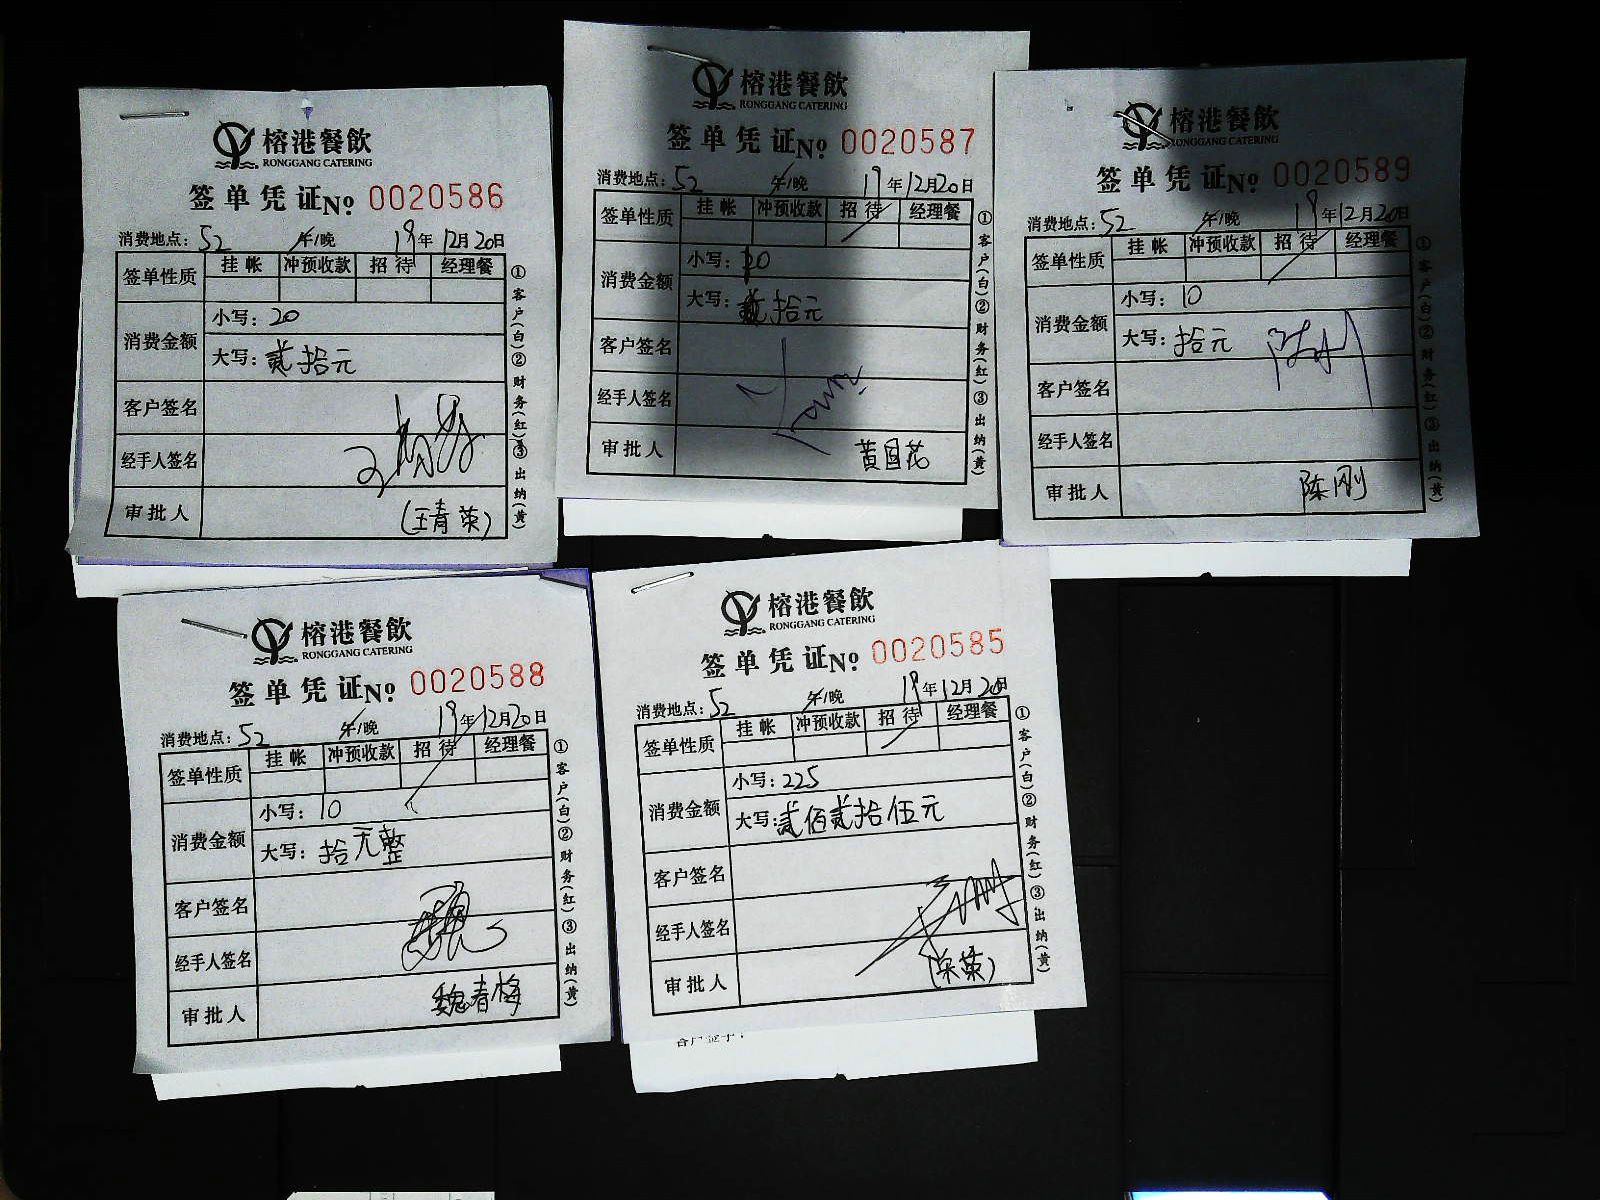 榕港餐飲
RONGGANG CATERING
签单凭证 No 0020586
消费地点: 52 午/晚 19年12月20日
签单性质 挂帐 冲预收款 招待 经理餐
消费金额 小写: 20
大写: 贰拾元
客户签名
经手人签名
审批人 (王青荣)
①客户(白)②财务(红)③出纳(黄)
榕港餐飲
RONGGANG CATERING
签单凭证 No 0020587
消费地点: 52 午/晚 19年12月20日
签单性质 挂帐 冲预收款 招待 经理餐
消费金额 小写: 20
大写: 贰拾元
客户签名
经手人签名
审批人 黄国花
①客户(白)②财务(红)③出纳(黄)
榕港餐飲
RONGGANG CATERING
签单凭证 No 0020589
消费地点: 52 午/晚 19年12月20日
签单性质 挂帐 冲预收款 招待 经理餐
消费金额 小写: 10
大写: 拾元
客户签名
经手人签名
审批人 陈刚
①客户(白)②财务(红)③出纳(黄)
榕港餐飲
RONGGANG CATERING
签单凭证 No 0020588
消费地点: 52 午/晚 19年12月20日
签单性质 挂帐 冲预收款 招待 经理餐
消费金额 小写: 10
大写: 拾元整
客户签名
经手人签名
审批人 魏春梅
①客户(白)②财务(红)③出纳(黄)
榕港餐飲
RONGGANG CATERING
签单凭证 No 0020585
消费地点: 52 午/晚 19年12月20日
签单性质 挂帐 冲预收款 招待 经理餐
消费金额 小写: 225
大写: 贰佰贰拾伍元
客户签名
经手人签名
审批人
①客户(白)②财务(红)③出纳(黄)